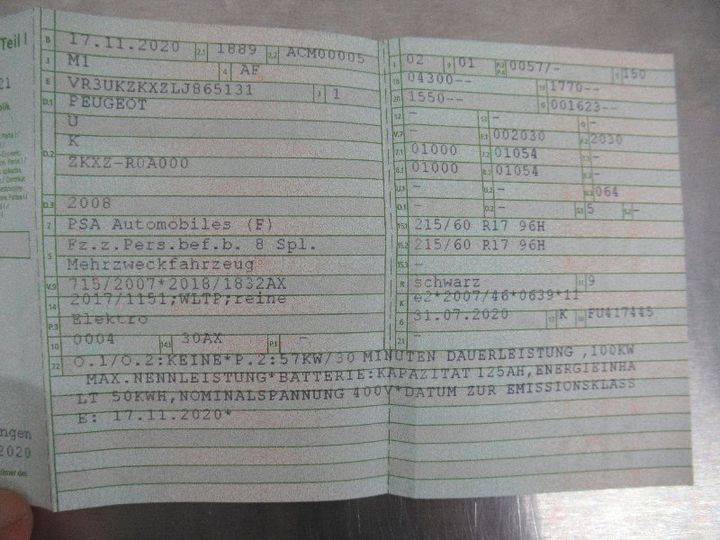 Teil I
B 17.11.2020 2.1 1889 2.2 ACM00005
J M1 4 AF
E VR3UKZKXZLJ865131 3 1
D.1 PEUGEOT
U
D.2 K
ZKXZ-R0A000
D.3 2008
2 PSA Automobiles (F)
5 Fz.z.Pers.bef.b. 8 Spl.
Mehrzweckfahrzeug
V.9 715/2007*2018/1832AX
14 2017/1151;WLTP;reine
P.3 Elektro
10 0004 14.1 30AX P.1 -
L 02 9 01 P.2 P.4 0057/- T 150
18 04300-- 19 1770--
20 1550-- G 001623--
12 - 13 - Q -
V.7 - F.1 002030 F.2 2030
7.1 01000 7.2 01054 7.3 -
8.1 01000 8.2 01054 8.3 -
U.1 - U.2 - U.3 064
O.1 - O.2 - S.1 5 S.2 -
15.1 215/60 R17 96H
15.2 215/60 R17 96H
15.3 -
R schwarz 11 9
K e2*2007/46*0639*11
6 31.07.2020 17 K 16 FU417445
21 -
22 O.1/O.2:KEINE*P.2:57KW/30 MINUTEN DAUERLEISTUNG ,100KW
MAX.NENNLEISTUNG*BATTERIE:KAPAZITAT 125AH,ENERGIEINHA
LT 50KWH,NOMINALSPANNUNG 400V*DATUM ZUR EMISSIONSKLASS
E: 17.11.2020*
21
ngen
2020